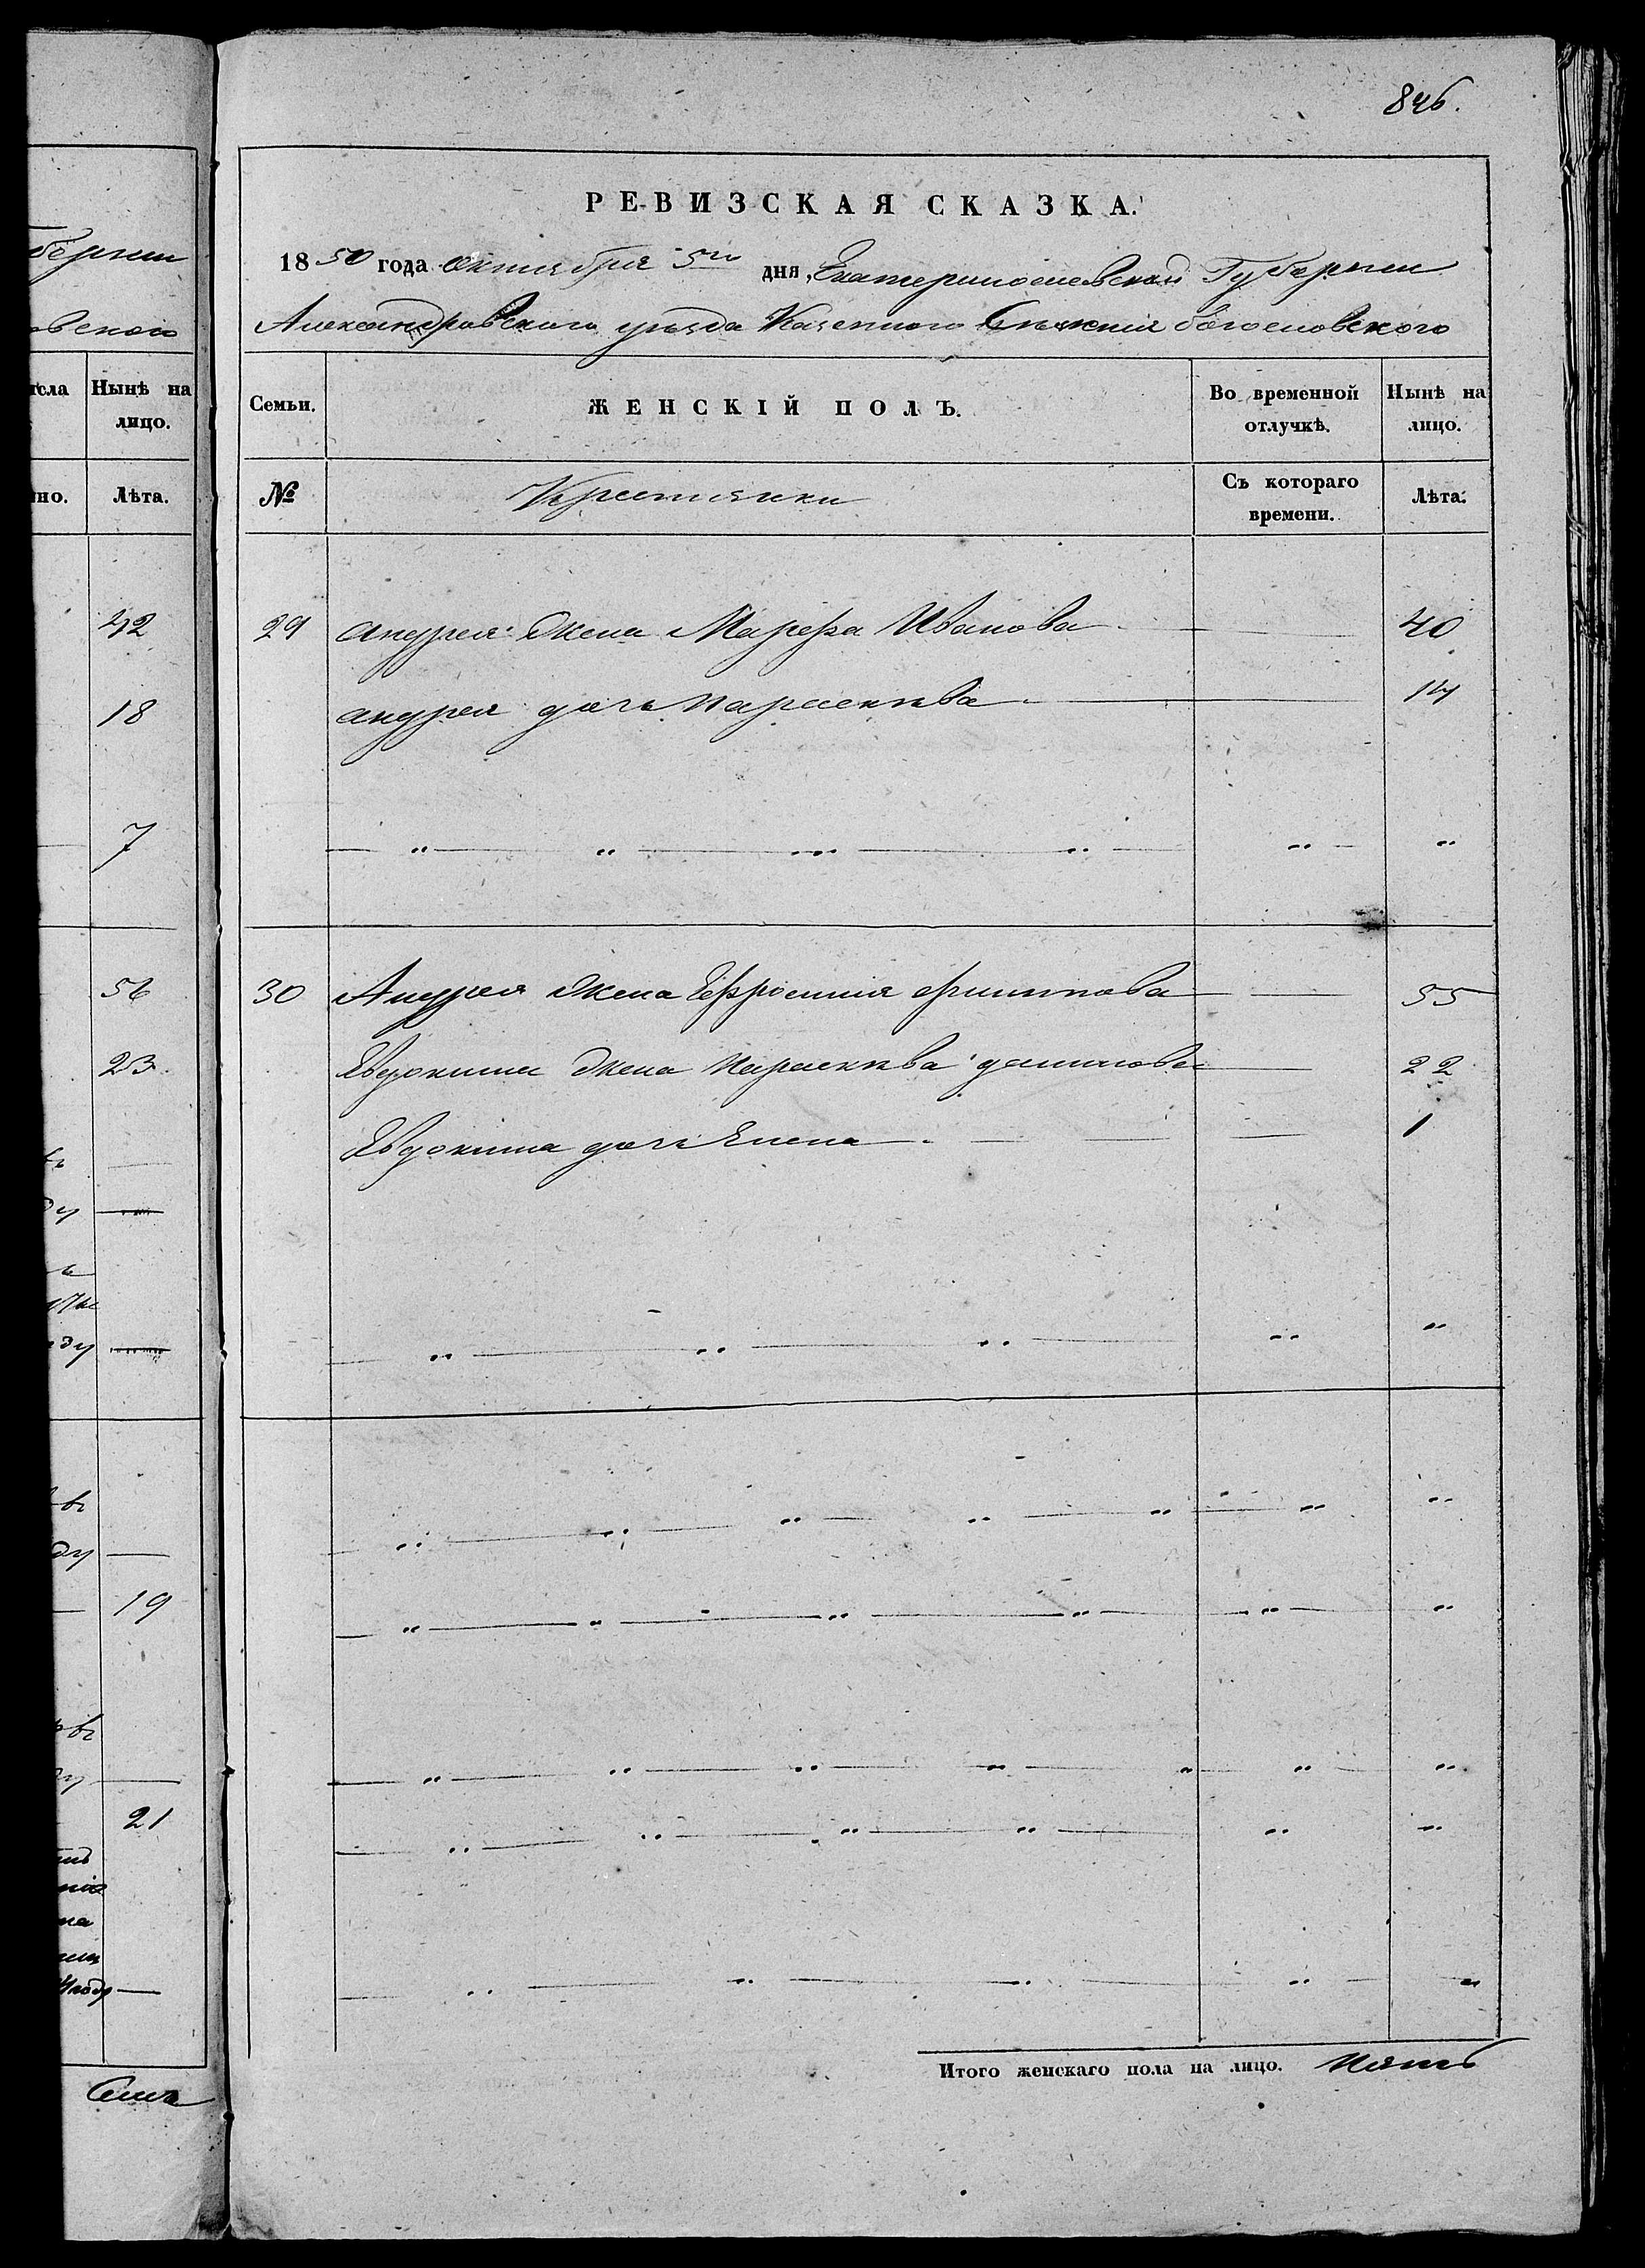 846.
РЕВИЗСКАЯ СКАЗКА.
1850 года октября 5го дня, Екатеринославской Губернии
Александровского уезда Казенного Селения богословского
Семьи. ЖЕНСКІЙ ПОЛЪ. Во временной отлучкѣ. Нынѣ на лицо.
№ Крестьянки Съ котораго времени. Лѣта.
29 андрея жена Марефа Иванова 40
андрея дочь параскева 14
30 Андрея жена Ефросиния филипова 55
Евдокима жена параскева данилова 22
Евдокима дочь Елена 1
Итого женскаго пола на лицо. пять
Нынѣ на лицо.
Лѣта.
42
18
7
56
23
19
21
Семь